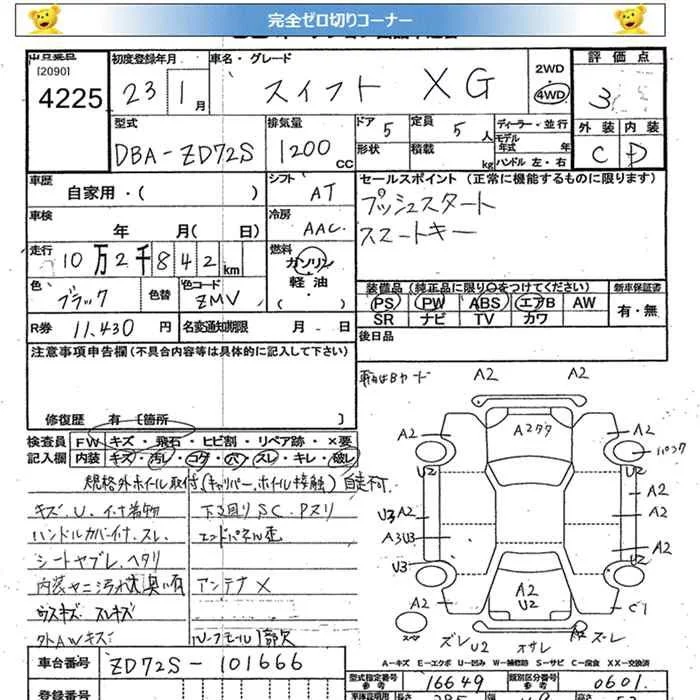 完全ゼロ切りコーナー
[2090]
4225
初度登録年月
23 1月
車名・グレード
スイフト XG
2WD
4WD
評価点
3
外装 内装
C D
型式
DBA-ZD72S
排気量
1200 CC
ドア 5
定員 5人
形状
積載 kg
ディーラー・並行
モデル年式 年
ハンドル 左・右
車歴
自家用・( )
シフト AT
セールスポイント(正常に機能するものに限ります)
プッシュスタート
スマートキー
車検
年 月( 日)
冷房 AAC
走行
10万2千842km
燃料
ガソリン
軽油
・( )
色 ブラック
色替
色コード ZMV
装備品(純正品に限り○をつけてください)
PS PW ABS エアB AW
SR ナビ TV カワ
新車保証書
有・無
R券 11,430円
名変通知期限 月 日
後日品
注意事項申告欄(不具合内容等は具体的に記入して下さい)
修復歴 有〔箇所 〕
検査員記入欄
FW キズ・飛石・ヒビ割・リペア跡・×要
内装 キズ・汚レ・コゲ・穴・スレ・キレ・破レ
規格外ホイル取付(キャリパー、ホイル接触)自走不可
キズ、U、イナ着物
下回りSC、Pスリ
ハンドルカバー付、スレ
エンドパネル歪
シートヤブレ、ヘタリ
内装ヤニ汚れ大臭い有
アンテナX
ウスキズ スレキズ
外AWキズ
A2 A2
A2 A2
パンク
U2 U2
A2
U3 A2 A2
A3 U3 A2
U3 U2
A2 A2 U2 C1
スペア
ズレ U2 オサレ ズレ
A-キズ E-エクボ U-凹み W-補修跡 S-サビ C-腐食 XX-交換済
車台番号 ZD72S-101666
型式指定番号 16649
類別区分番号 0601
登録番号